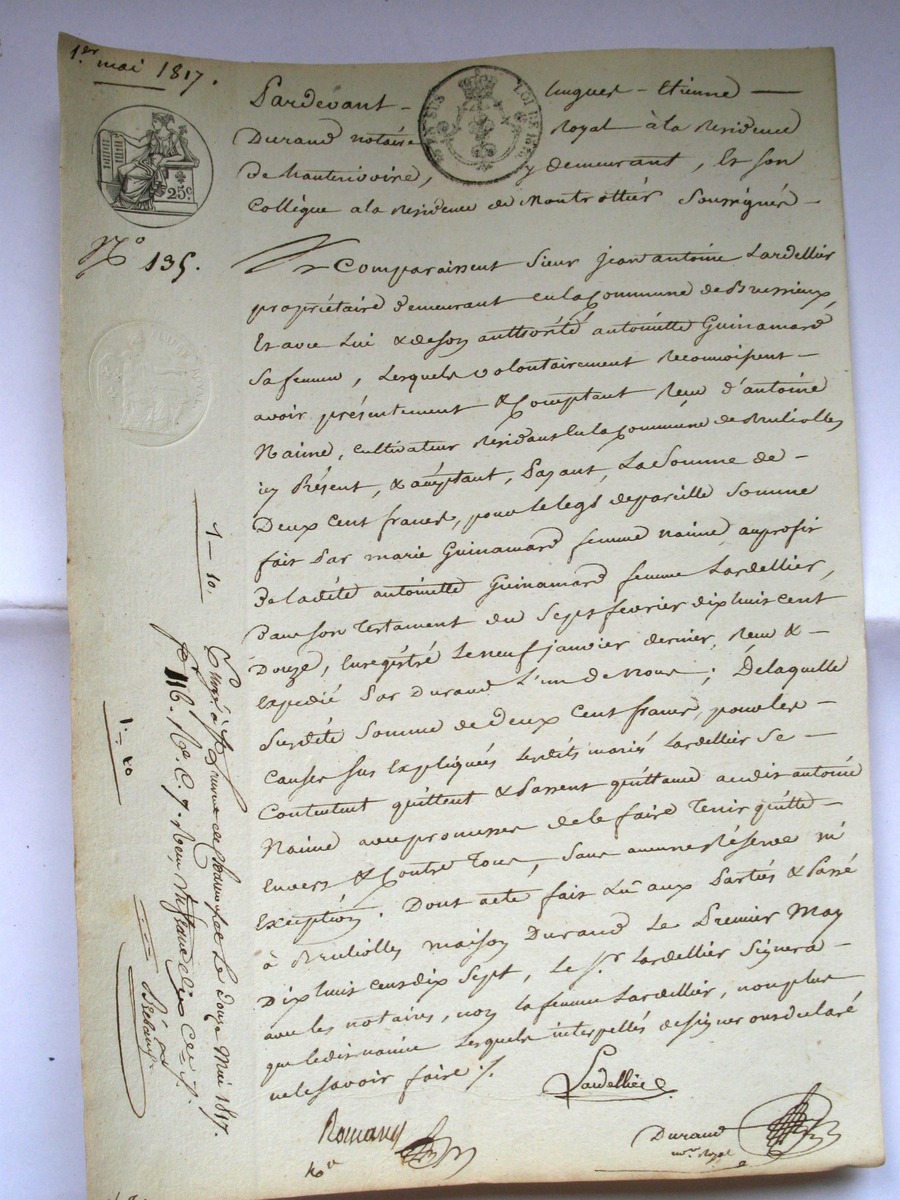 1.er mai 1817.
25c.
N.o 135.
Pardevant - hugues - Etienne -
Durand notaire Royal à la Residence
De hauterivoire, y demeurant, Et son
Collègue a la Residence de Montrottier Soussignés -
Comparaissent Sieur Jean antoine Lardellier
propriétaire Demeurant en la Commune de Brussieux,
Et avec Lui & de son authorité antoinette Guinamard
sa femme, Lesquels volontairement Reconnoissent -
avoir présentement & Comptant Reçu d'antoine
Naime, Cultivateur Residant En la Commune de Brullolles
icy Présent, & acceptant, Payant, La Somme de -
Deux cent francs, pour le legs de pareille Somme
fait Par marie Guinamard femme naime au profit
De la dite antoinette Guinamard femme Lardellier,
Dans son Testament du Sept fevrier dix huit cent
Douze, Enregistré Le neuf janvier dernier, Reçu & -
Expedié Par Durand L'un de Nous; De laquelle
Susdite Somme de Deux Cent francs, pour les
Causes sus Expliquées Lesdits mariés Lardellier se -
Contentent quittent & Passent quittance audit antoine
Naime avec promesse de le faire Tenir quitte -
Envers & Contre Tous, Sans aucune Réserve ni
Exception. Dont acte fait Lu aux Parties & Passé
à Brullolles maison Durand Le Premier May
Dix huit Cent dix Sept, Le Sr. Lardellier Signera -
avec les notaires, non la femme Lardellier, non plus
que ledit naime Lesquels interpellés de signer ont déclaré
ne le Savoir faire ./.
Lardellier
Romany
Durand
no.re Royal
1 - 10.
Le Douze Mai 1817.
1 - 20